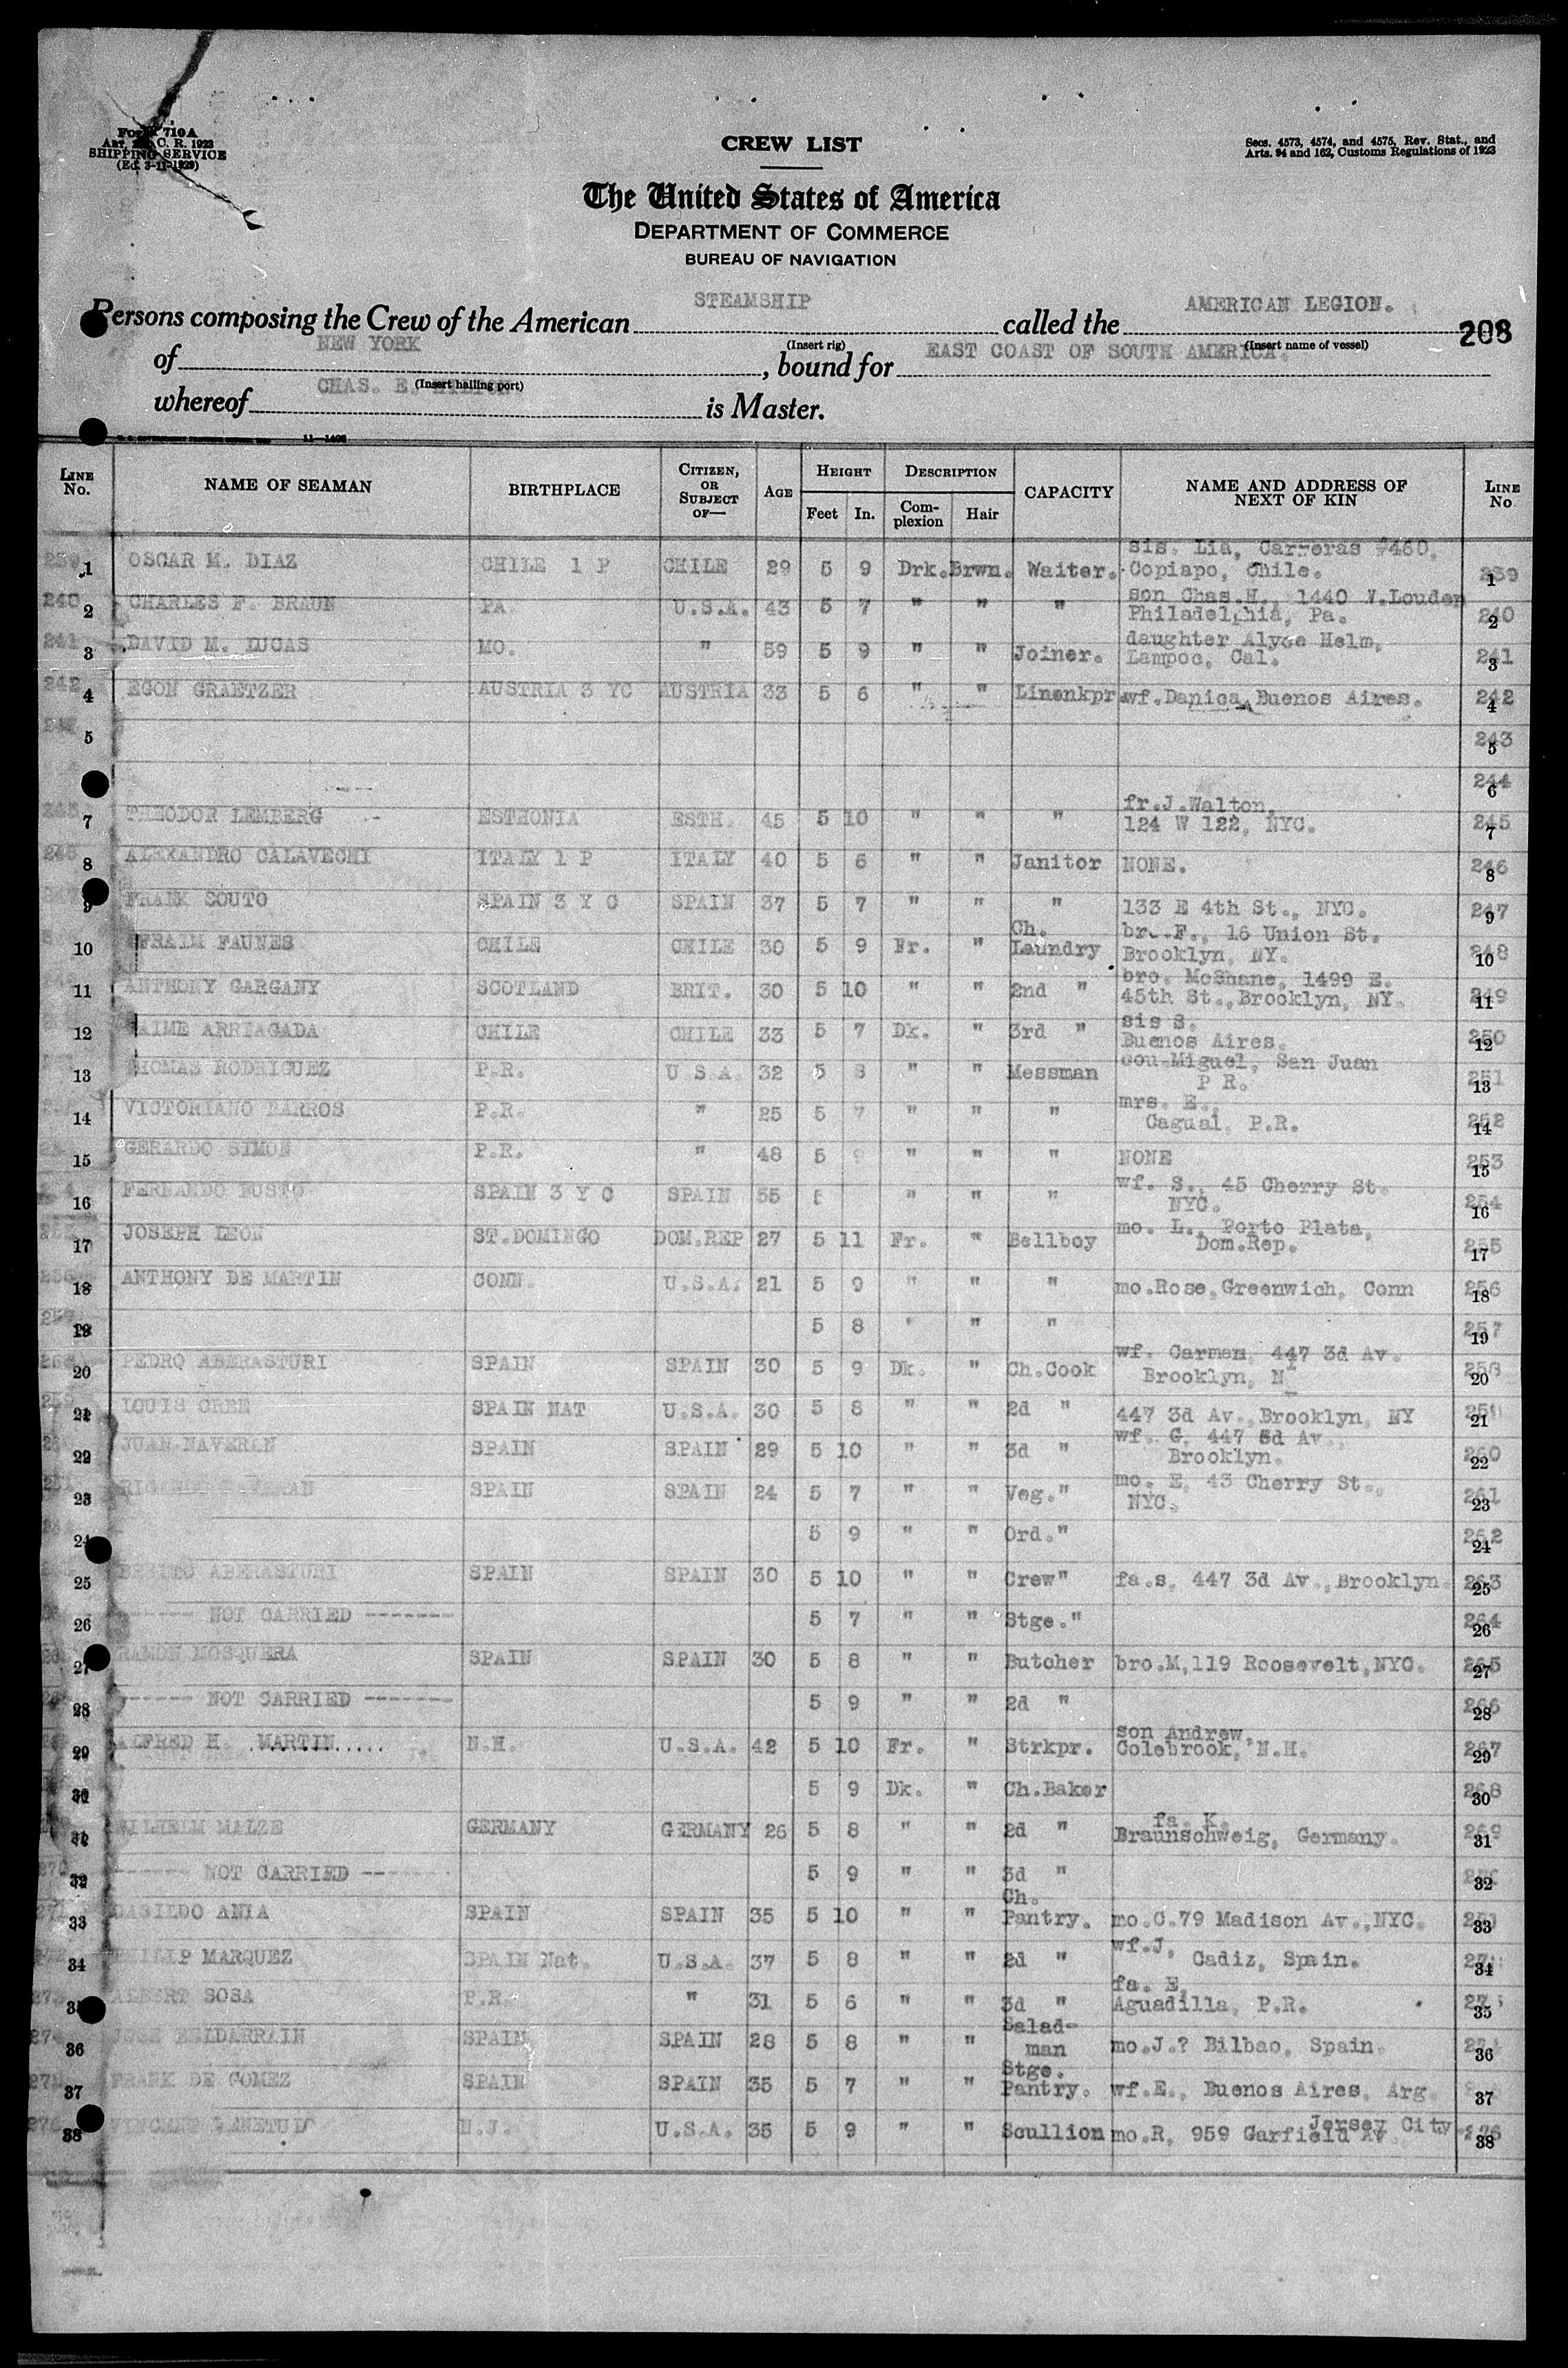 Form 710A
Art. C. R. 1923
SHIPPING SERVICE
(Ed. 3-11-1929)
CREW LIST
Secs. 4573, 4574, and 4575, Rev. Stat., and
Arts. 94 and 162, Customs Regulations of 1923
The United States of America
DEPARTMENT OF COMMERCE
BUREAU OF NAVIGATION
Persons composing the Crew of the American STEAMSHIP called the AMERICAN LEGION. 208
(Insert rig) (Insert name of vessel)
of NEW YORK, bound for EAST COAST OF SOUTH AMERICA.
(Insert hailing port)
whereof CHAS. E. is Master.
11—1402
LINE No. NAME OF SEAMAN BIRTHPLACE CITIZEN, OR SUBJECT OF— AGE HEIGHT Feet In. DESCRIPTION Complexion Hair CAPACITY NAME AND ADDRESS OF NEXT OF KIN LINE No
239 1 OSCAR M. DIAZ CHILE 1 P CHILE 29 5 9 Drk. Brwn. Waiter. sis. Lia, Carreras #460, Copiapo, Chile. 239 1
240 2 CHARLES F. BRAUN PA. U.S.A. 43 5 7 " " " son Chas.H., 1440 W.Louden Philadelphia, Pa. 240 2
241 3 DAVID M. LUCAS MO. " 59 5 9 " " Joiner. daughter Alyce Helm, Lampoc, Cal. 241 3
242 4 EGON GRAETZER AUSTRIA 3 YC AUSTRIA 33 5 6 " " Linenkpr. wf.Danica, Buenos Aires. 242 4
5 243 5
244 6
7 THEODOR LEMBERG ESTHONIA ESTH. 45 5 10 " " " fr.J.Walton, 124 W 122, NYC. 245 7
8 ALEXANDRO CALAVECHI ITALY 1 P ITALY 40 5 6 " " Janitor NONE. 246 8
9 FRANK SOUTO SPAIN 3 Y C SPAIN 37 5 7 " " " 133 E 4th St., NYC. 247 9
10 EFRAIM FAUNES CHILE CHILE 30 5 9 Fr. " Ch. Laundry br..F., 16 Union St. Brooklyn, NY. 248 10
11 ANTHONY GARGANY SCOTLAND BRIT. 30 5 10 " " 2nd " bro. McShane, 1499 E. 45th St., Brooklyn, NY. 249 11
12 JAIME ARRIAGADA CHILE CHILE 33 5 7 Dk. " 3rd " sis S. Buenos Aires. 250 12
13 THOMAS RODRIGUEZ P.R. U S A. 32 5 8 " " Messman cou.Miguel, San Juan P R. 251 13
14 VICTORIANO BARROS P.R. " 25 5 7 " " " mrs. E., Cagual, P.R. 252 14
15 GERARDO SIMON P.R. " 48 5 9 " " " NONE 253 15
16 FERNANDO BUSTO SPAIN 3 Y C SPAIN 55 5 " " " wf. S., 45 Cherry St. NYC. 254 16
17 JOSEPH LEON ST.DOMINGO DOM.REP 27 5 11 Fr. " Bellboy mo. L., Porto Plata, Dom.Rep. 255 17
256 18 ANTHONY DE MARTIN CONN. U.S.A. 21 5 9 " " " mo.Rose,Greenwich, Conn 256 18
257 19 5 8 " " " 257 19
20 PEDRO ABERASTURI SPAIN SPAIN 30 5 9 Dk. " Ch.Cook wf. Carmen, 447 3d Av. Brooklyn, NY 258 20
21 LOUIS OREE SPAIN NAT U.S.A. 30 5 8 " " 2d " 447 3d Av., Brooklyn, NY 259 21
22 JUAN NAVERAN SPAIN SPAIN 29 5 10 " " 3d " wf. G. 447 3d Av., Brooklyn. 260 22
23 SPAIN SPAIN 24 5 7 " " Veg." mo. E, 43 Cherry St., NYC. 261 23
24 5 9 " " Ord." 262 24
25 BENITO ABERASTURI SPAIN SPAIN 30 5 10 " " Crew" fa.s, 447 3d Av.,Brooklyn. 263 25
26 ------ NOT CARRIED ------- 5 7 " " Stge." 264 26
27 RAMON MOSQUERA SPAIN SPAIN 30 5 8 " " Butcher bro.M,119 Roosevelt,NYC. 265 27
28 ------ NOT CARRIED ------- 5 9 " " 2d " 266 28
29 ALFRED H. MARTIN..... N.H. U.S.A. 42 5 10 Fr. " Strkpr. son Andrew, Colebrook, N.H. 267 29
30 5 9 Dk. " Ch.Baker 268 30
31 WILHELM MALZE GERMANY GERMANY 26 5 8 " " 2d " fa. K. Braunschweig, Germany. 269 31
270 32 ------ NOT CARRIED ------- 5 9 " " 3d " 32
271 33 CASILDO ANIA SPAIN SPAIN 35 5 10 " " Ch. Pantry. mo.C.79 Madison Av.,NYC. 33
34 PHILIP MARQUEZ SPAIN Nat. U.S.A. 37 5 8 " " 2d " wf.J, Cadiz, Spain. 34
273 35 ALBERT SOSA P.R. " 31 5 6 " " 3d " fa. E, Aguadilla, P.R. 35
274 36 JOSE SPAIN SPAIN 28 5 8 " " Salad-man mo.J.? Bilbao, Spain. 36
275 37 FRANK DE GOMEZ SPAIN SPAIN 35 5 7 " " Stge. Pantry. wf.E., Buenos Aires, Arg. 37
276 38 N.J. U.S.A. 35 5 9 " " Scullion mo.R, 959 Garfield Av Jersey City. 276 38